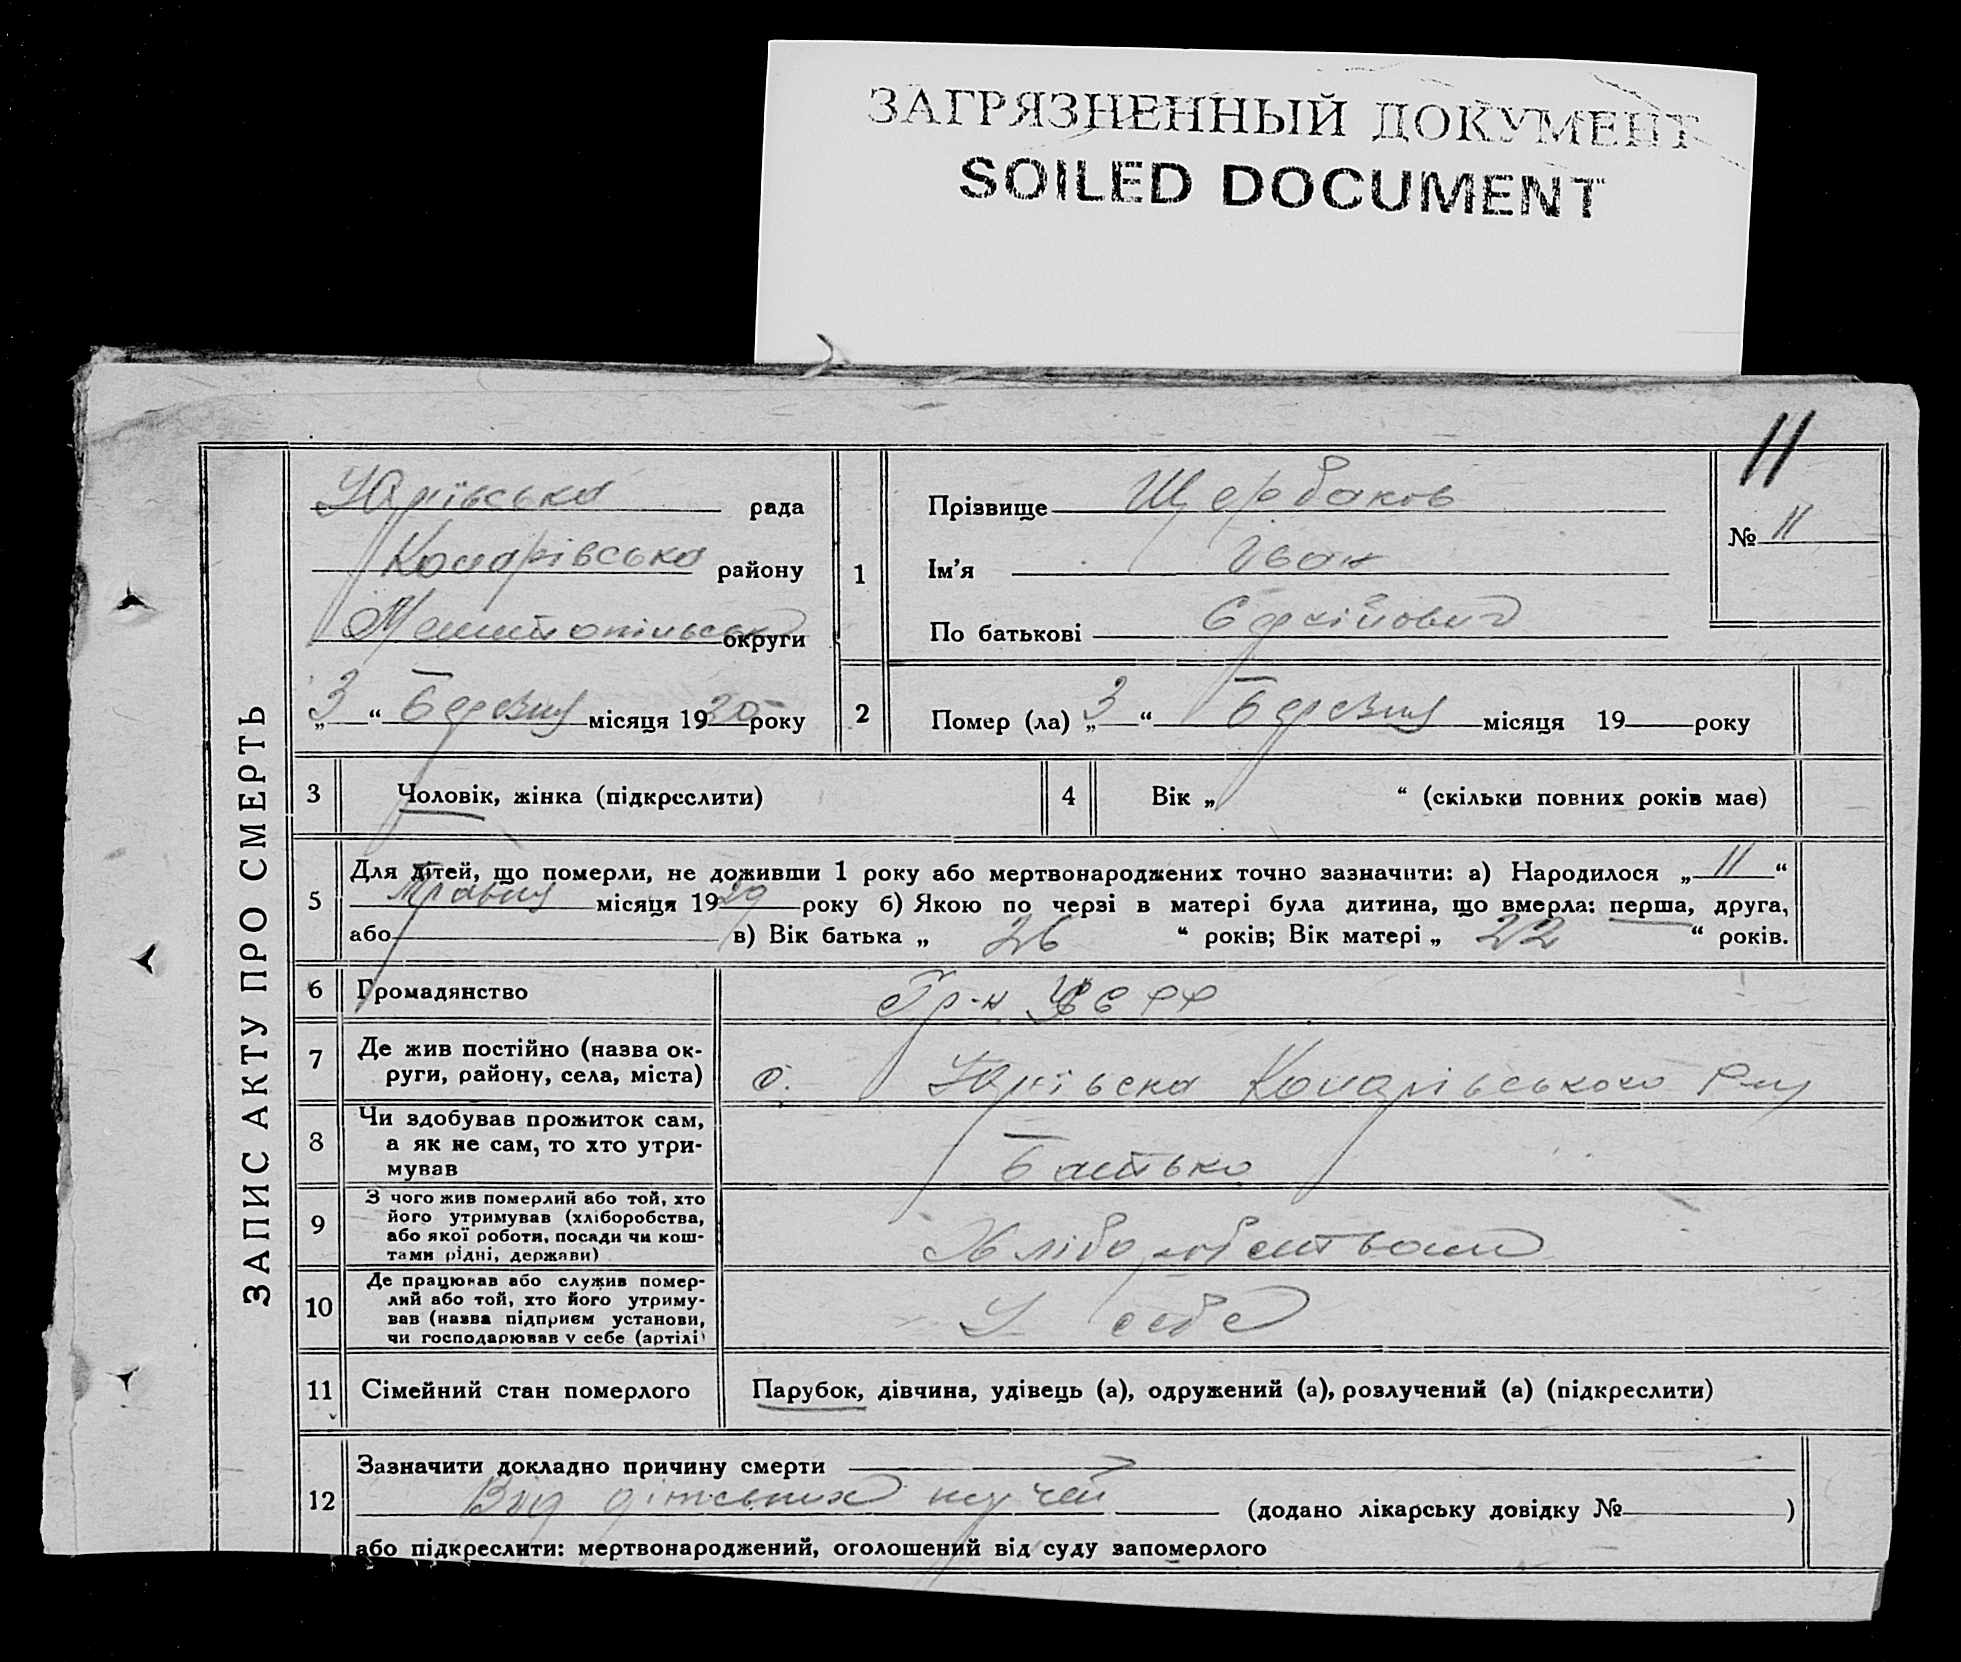 ЗАГРЯЗНЕННЫЙ ДОКУМЕНТ
SOILED DOCUMENT
11
ЗАПИС АКТУ ПРО СМЕРТЬ
Юріївська рада
району
Мелітопільська округи
„3“ Березня місяця 1930 року
1
Прізвище Щербаков
Ім'я Іван
По батькові Сергійович
№ 11
2
Помер (ла) „3“ Березня місяця 19 року
3
Чоловік, жінка (підкреслити)
4
Вік „ “ (скільки повних років має)
5
Для дітей, що померли, не доживши 1 року або мертвонароджених точно зазначити: а) Народилося „11“
Травня місяця 1929 року б) Якою по черзі в матері була дитина, що вмерла: перша, друга,
або в) Вік батька „ 26 “ років; Вік матері „ 22 “ років.
6
Громадянство
Гр-н
7
Де жив постійно (назва ок-
руги, району, села, міста)
с.
8
Чи здобував прожиток сам,
а як не сам, то хто утри-
мував
Батько
9
З чого жив померлий або той, хто
його утримував (хліборобства,
або якої роботи, посади чи кош-
тами рідні, держави)
Хліборобством
10
Де працював або служив помер-
лий або той, хто його утриму-
вав (назва підприєм установи,
чи господарював у себе (артілі)
У себе
11
Сімейний стан померлого
Парубок, дівчина, удівець (а), одружений (а), розлучений (а) (підкреслити)
12
Зазначити докладно причину смерти
Від дітських (додано лікарську довідку № )
або підкреслити: мертвонароджений, оголошений від суду запомерлого